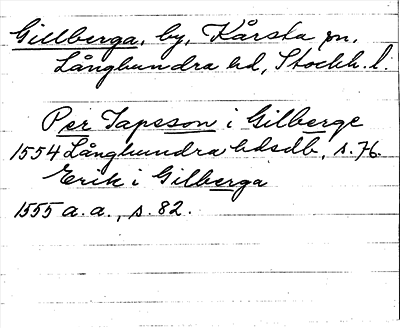 Gillberga, by, Kårsta sn,
Långhundra hd, Stockh. l.
Per Japsson i Gilberge
1554 Långhundra hdsdb, s. 76.
Erik i Gilberga
1555 a. a., s. 82.